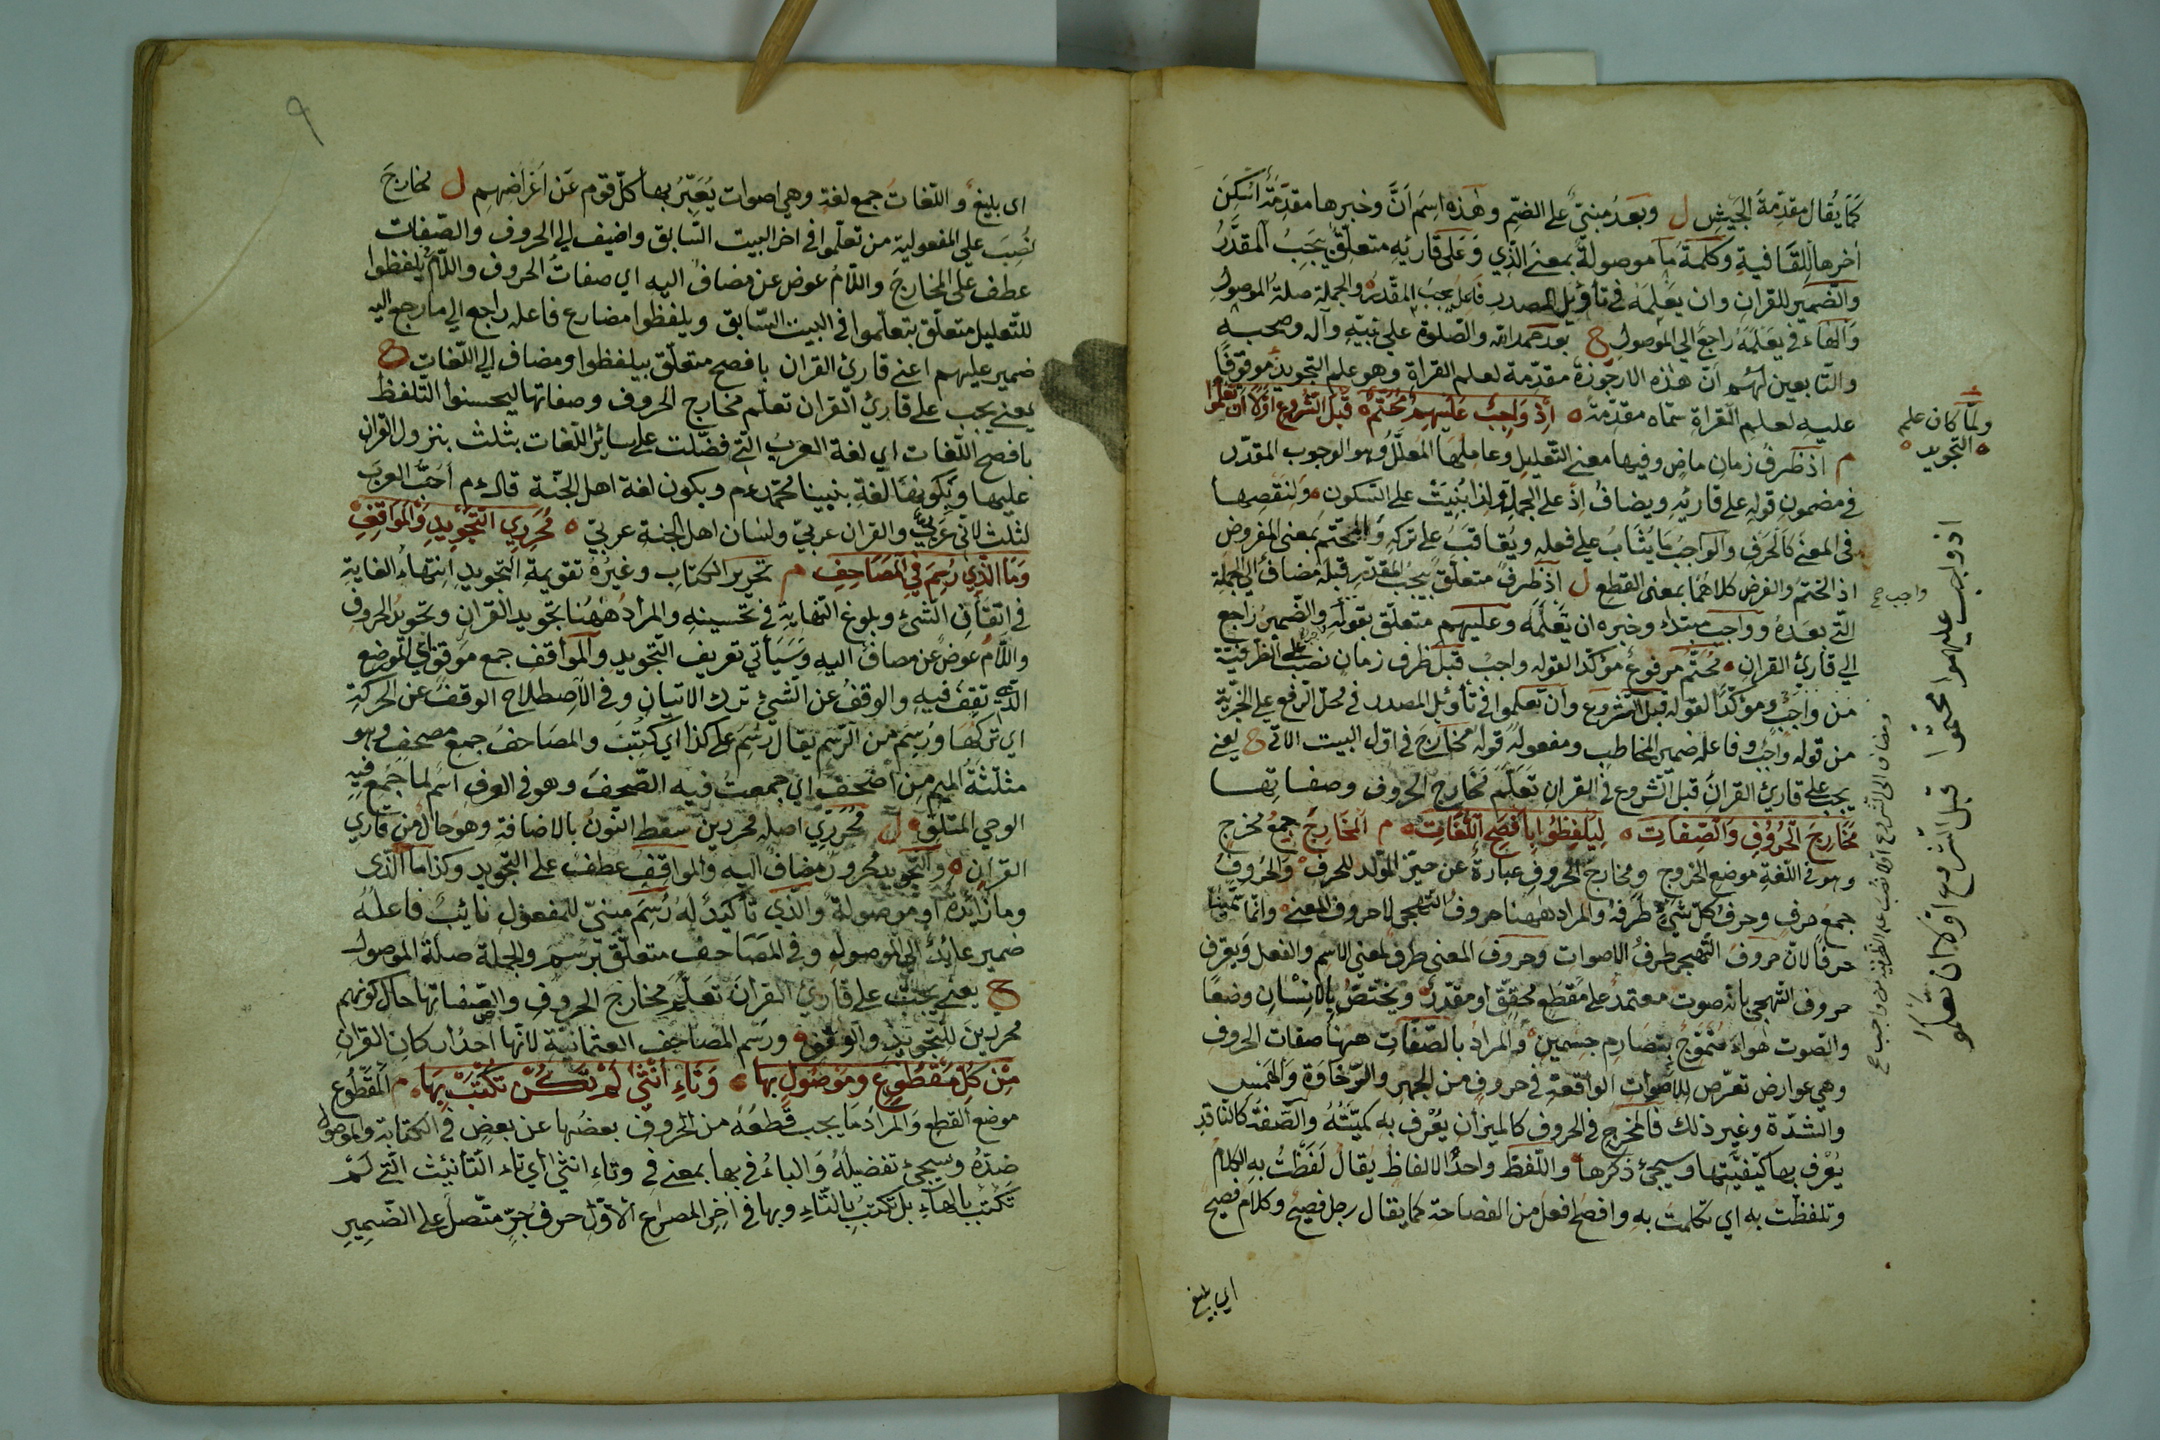 كما يُقال مقدّمة الجيش ل وبعدُ مبنيّ على الضمّ وهذه اسم انّ وخبرها مقدّمة اُسكِنَ
اخرها للقافية وكلمة ما موصولة بمعنى الذي وعلى قارئه متعلّق بيجب المقدّر
والضمير للقران وان يعلمه في تأويل المصدر فاعل يجب المقدّر والجملة صلة الموصول
والهاء في يعلمه راجع الي الموصول ح بعد حمد الله والصّلوة علي نبيّه وآله وصحبه
والتّابعين لهُم انّ هذه الارجوزة مقدّمة لعلم القراة وهو علم التجويد موقوفًا
عليه لعلم القراة سمّاه مقدّمة اذ واجبٌ عليهم محتّم قبل الشروع اوّلًا ان تعلموا
م اذ ظرفُ زمانٍ ماضٍ وفيها معنى التّعليل وعاملها المعلّل وهو الوجوب المقدّر
في مضمون قوله على قارئه ويضافُ اذ على الجملة ولذا بُنيت على السّكون ولنقصها
في المعنى كالحرف والواجب ما يُثابُ علي فعله ويُعاقبُ على تركه والمحتّم بمعنى المفروض
اذ الختم والفرض كلاهما بمعنى القطع ل اذ ظرفٌ متعلّق بيجب المقدّر قبله مضاف الى الجملة
التّي بعده وواجب مبتدا وخبره ان يعلّمه وعليهم متعلّق بقوله والضّمير راجع
الي قارئ القران محتّم مرفوع مؤكّد القوله واجبٌ قبل ظرف زمان نصب على الظرفيّة
من واجبٌ ومؤكّدًا لقوله قبل الشروع وان تعلموا في تأويل المصدر في محلّ الرّفع علي الخبريّة
من قوله واجبٌ وفاعله ضمير المخاطب ومفعولُه قوله مخارج في اوّل البيت الاتي ح يعني
يجب على قارئ القران قبل الشّروع في القران تعلّم مخارج الحروف وصفاتها
مخارج الحروف والصّفات ليلفظوا بافصح اللّغات م المخارج جمعُ مخرج
وهو في اللّغة موضع الخروج ومخارج الحروف عبارة عن حيّز المولّد للحرف والحروفُ
جمعُ حرف وحرف كلّ شيء طرفه والمراد ههنا حروف التهجي لا حروف المعنى وانّما سمّيتا
حرفًا لانّ حروف التّهجي طرفُ الاصوات وحروف المعنى طرف لمعنى الاسم والفعل ويعرف
حروف التّهجي بانّه صوت معتمد على مقطع محقّق او مقدّر ويختصّ بالانسان وضعًا
والصّوت هواء متموّج بتصادم جسمين والمراد بالصّفات ههنا صفات الحروف
وهي عوارض تعرّض للاصوات الواقعة في حروف من الجهر والرّخاوة والهمس
والشدّة وغير ذلك فالمخرج في الحروف كالميزان يُعرف به كميّته والصّفة كالنّاقد
يُعرف بها كيفيّتها وسيجئ ذكرها واللّفظ واحد الالفاظ يقال لفظتُ بهِ الكلام
وتلفظت به اي تكلمت به وافصح افعل من الفصاحة كما يقال رجل فصيح وكلام فصيح
اي بليغ
ولمّا كان علم
التجويد
واجب صح
اذ واجب عليهموا محتموا قبل الشروع اوّلا ان تعلموا
ومضاف الى الشروع اوّلا نصب على الظرفية من واجب صح
٩
اى بليغ واللّغات جمع لغة وهي اصوات يُعبِّرُ بها كلّ قوم عَن اغراضهم ل مخارجَ
نُصِبَ على المفعولية من تعلّموا في اخر البيت السّابق واضيف الي الحروف والصّفات
عطف على المخارج واللّامُ عوض عن مضاف اليه اي صفاتُ الحروف واللّامُ يلفظوا
للتّعليل متعلّق بتعلّموا في البيت السّابق ويلفظوا مضارع فاعله راجع الي ما رجع اليه
ضمير عليهم اعني قارئ القران بافصح متعلّق بيلفظوا ومضاف الي اللّغات ح
يعني يجب على قارئ القران تعلّم مخارج الحروف وصفاتها ليحسنوا التّلفظ
بافصح اللّغات اي لغة العرب الّتي فضّلت على سائر اللّغات بثلث بنزول القران
عليها وبكونها لغة نبينا محمّد عم وبكون لغة اهل الجنّة قال عم اُحبّ العرب
لثلث لانّي عَرَبيٌّ والقران عربيّ ولسان اهل الجنة عربيّ محرّري التّجويد والمواقف
وما الّذي رُسِمَ في المصاحف م تحرير الكتاب وغيره تقويمة التجويد انتهاءُ الغاية
في اتقان الشّئ وبلوغ النّهاية في تحسينه والمراد ههنا تجويد القران وتجويد الحروف
واللّام عوض عن مضاف اليه وسيأتي تعريف التّجويد والمواقف جمع موقف اي الموضع
الذي تقف فيه والوقفُ عن الشّئ تركُ الاتيان وفي الاصطلاح الوقف عن الحركة
اي تركها ورُسِم من الرّسم يقال رُسِم على كذا اي كُتِبَ والمصاحف جمع مصحف وهو
مثلّثة الميم من اُصحف اي جمعت فيه الصّحف وهو في العرف اسم لما جمع فيه
الوحي المتلوّ ل محرّري اصله محرّرين سقط النّون بالاضافة وهو حال من قارئ
القران والتّجويد مجرور مضاف اليه والمواقف عطف على التجويد وكذا ما الّذى
وما زائدة او موصولة والّذي تأكيدٌ له رُسِم مبنيّ للمفعول نائب فاعله
ضمير عائد الى الموصول وفي المصاحف متعلّق برسم والجملة صلة الموصول
ح يعني يجب على قارئ القران تعلّم مخارج الحروف والصّفاتها حال كونهم
محرّرين للتّجويد والوقوف ورسم المصاحف العثمانيّة لانّها احدُ اركان القران
من كلّ مقطوع وموصول بها وتاء انثى لم تكن تكتب بها م المقطوع
موضع القطع والمراد ما يجب قطعه من الحروف بعضها عن بعض في الكتابة والموصول
ضدّه وسيجئ تفضيلهُ والباءُ في بها بمعنى في وتاء انثى اي تاء التّأنيث الّتي لَم
تكتب بالهاء بل تكتب بالتّاء وبها في اخر المصراع الاوّل حرف جرّ متّصل على الضّمير